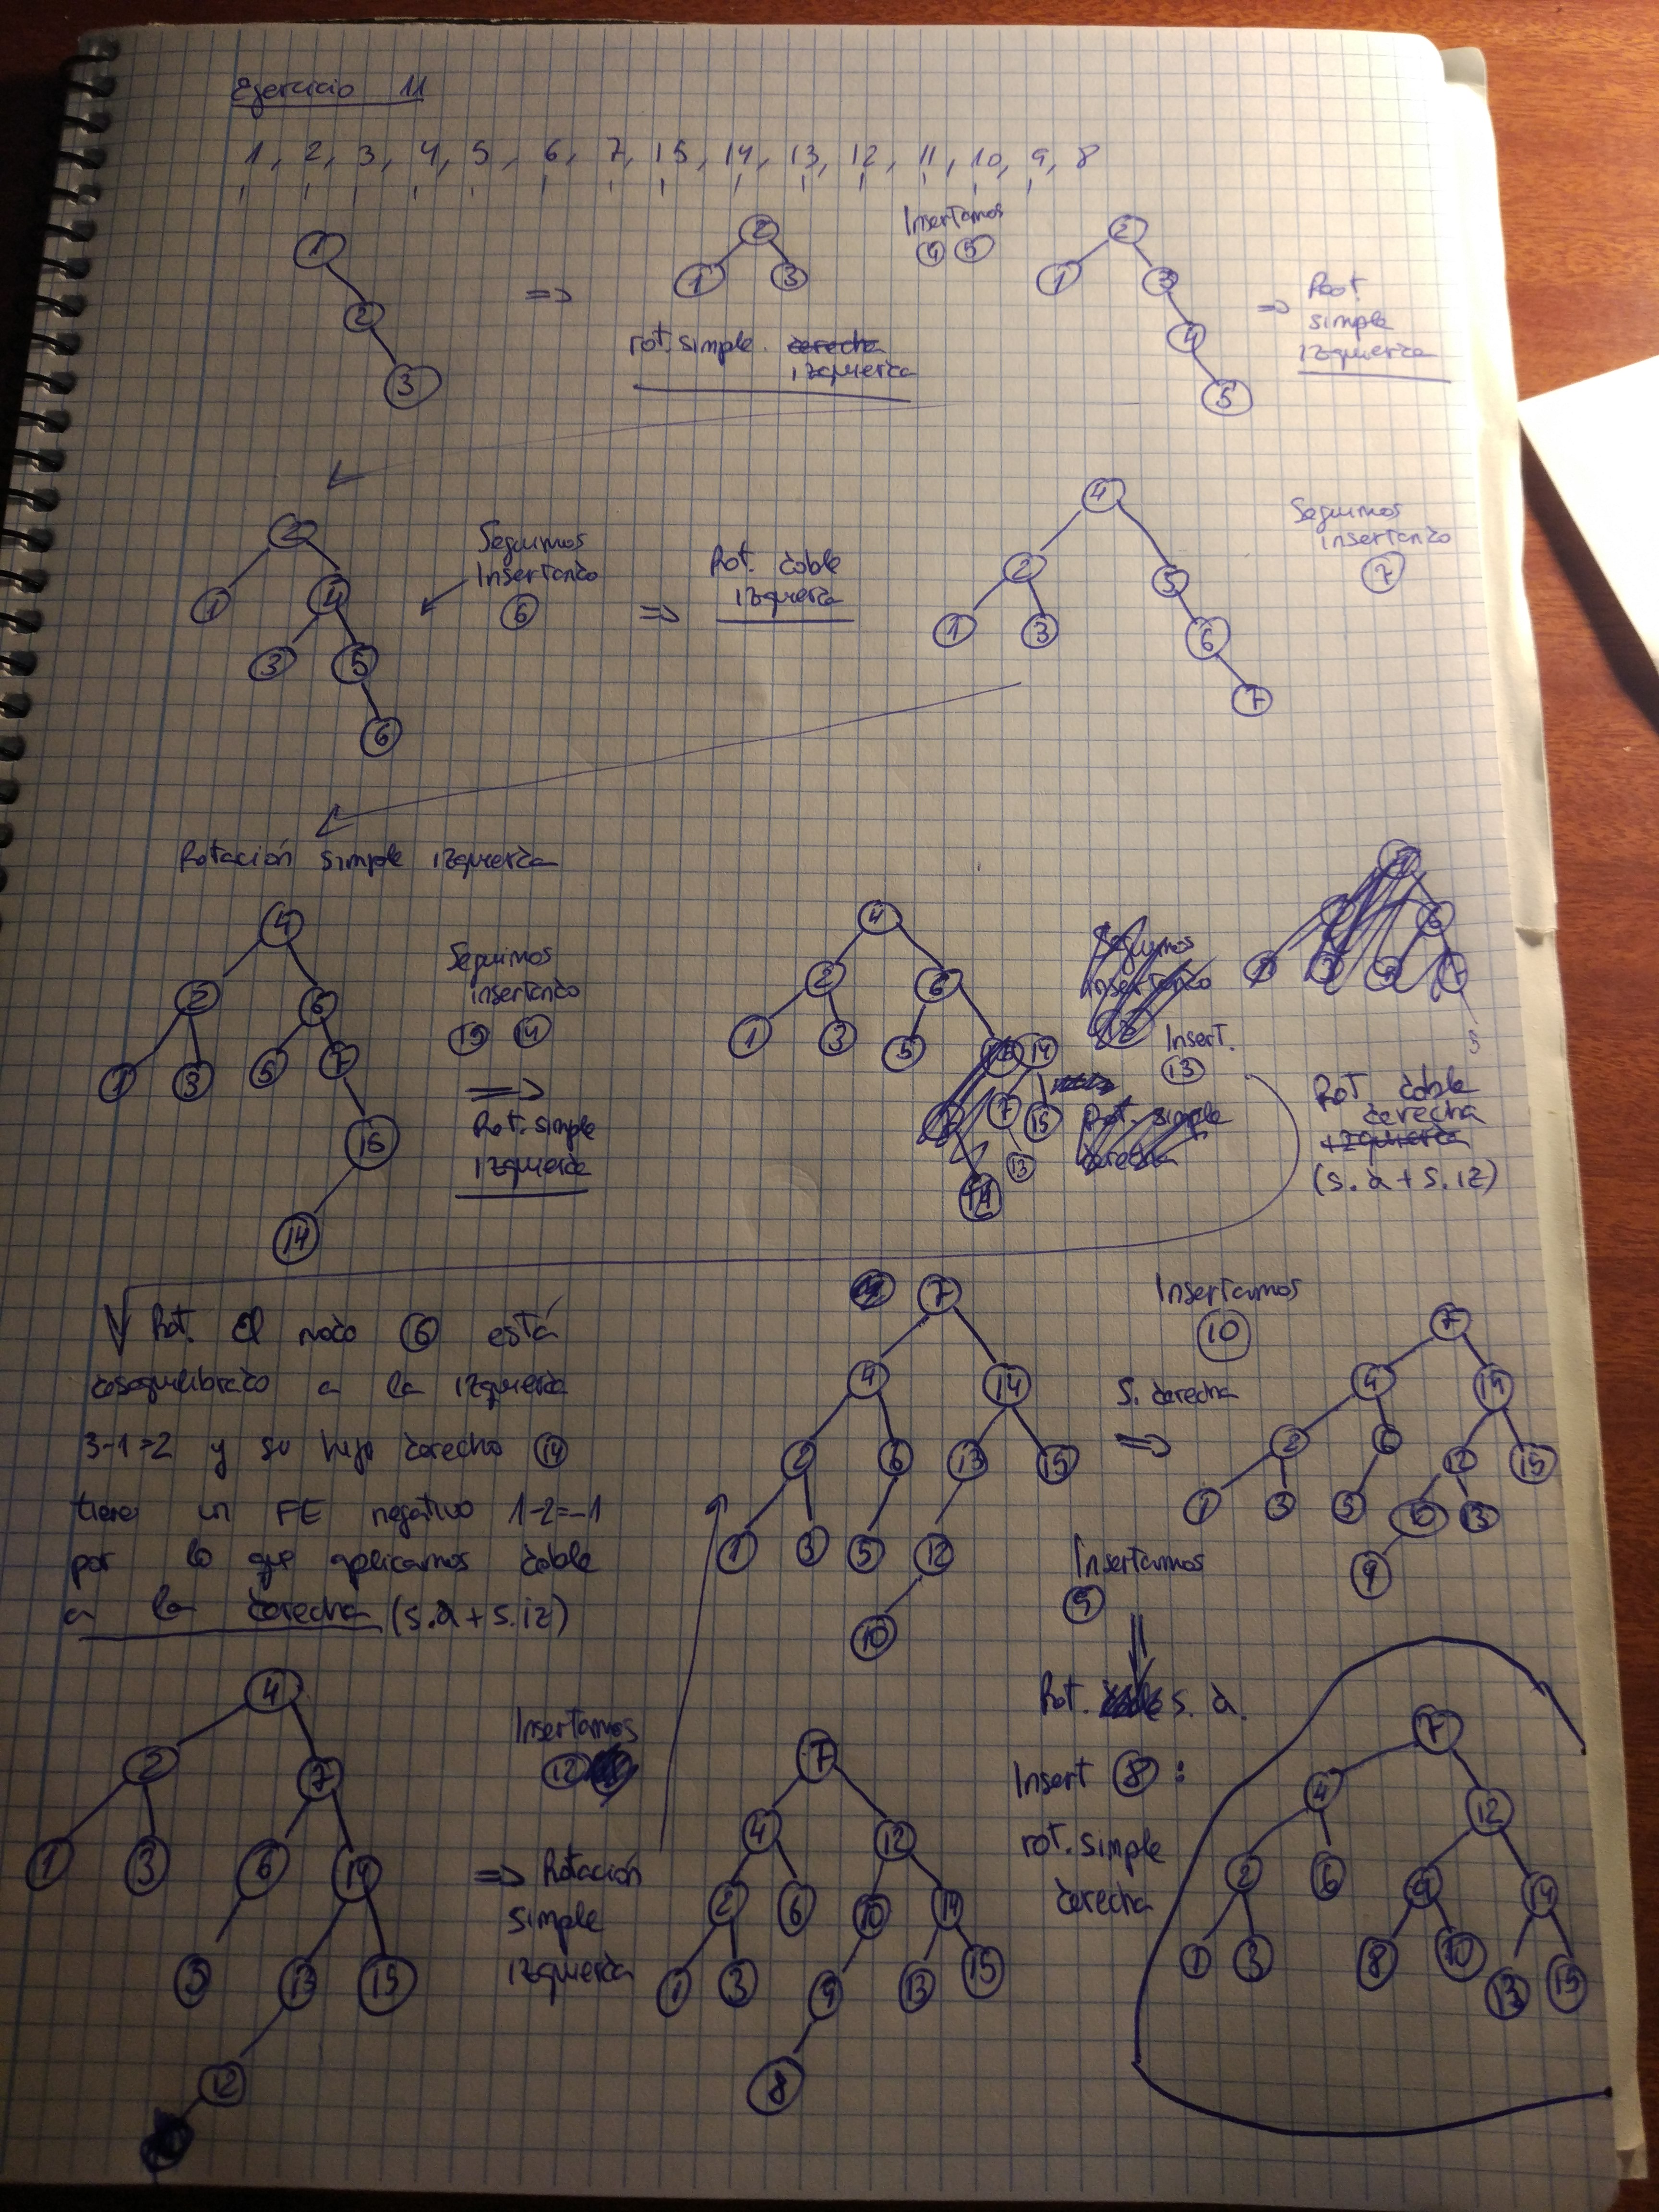 Ejercicio 11
1, 2, 3, 4, 5, 6, 7, 15, 14, 13, 12, 11, 10, 9, 8
1
2
3
=>
2
1 3
rot. simple derecha
izquierda
Insertamos
4 5
2
1 3
4
5
=> Root.
simple
izquierda
2
1 4
3 5
6
Seguimos
Insertando
6
=>
Rot. doble
izquierda
4
2 5
1 3 6
7
Seguimos
insertando
7
Rotación simple izquierda
4
2 6
1 3 5 7
15
14
Seguimos
insertando
15 14
=>
Rot. simple
izquierda
4
2 6
1 3 5 14
7 15
13
14
Seguimos
insertando
Insert.
13
Rot. simple
derecha
Rot. doble
derecha
izquierda
(s.d + s.iz)
Rot. El nodo 6 está
desequilibrado a la izquierda
3-1=2 y su hijo derecho 14
tiene un FE negativo 1-2=-1
por lo que aplicamos doble
a la derecha (s.d + s.iz)
7
4 14
2 6 13 15
1 3 5 12
10
Insertamos
10
S. derecha
=>
7
4 14
2 6 12 15
1 3 5 10 13
9
Insertamos
9
Rot. s. d.
4
2 7
1 3 6 14
5 13 15
12
Insertamos
12
=> Rotación
simple
izquierda
7
4 12
2 6 10 14
1 3 9 13 15
8
Insert 8:
rot. simple
derecha
7
4 12
2 6 9 14
1 3 8 10 13 15